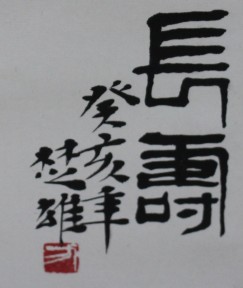 長壽
癸亥年
楚雄